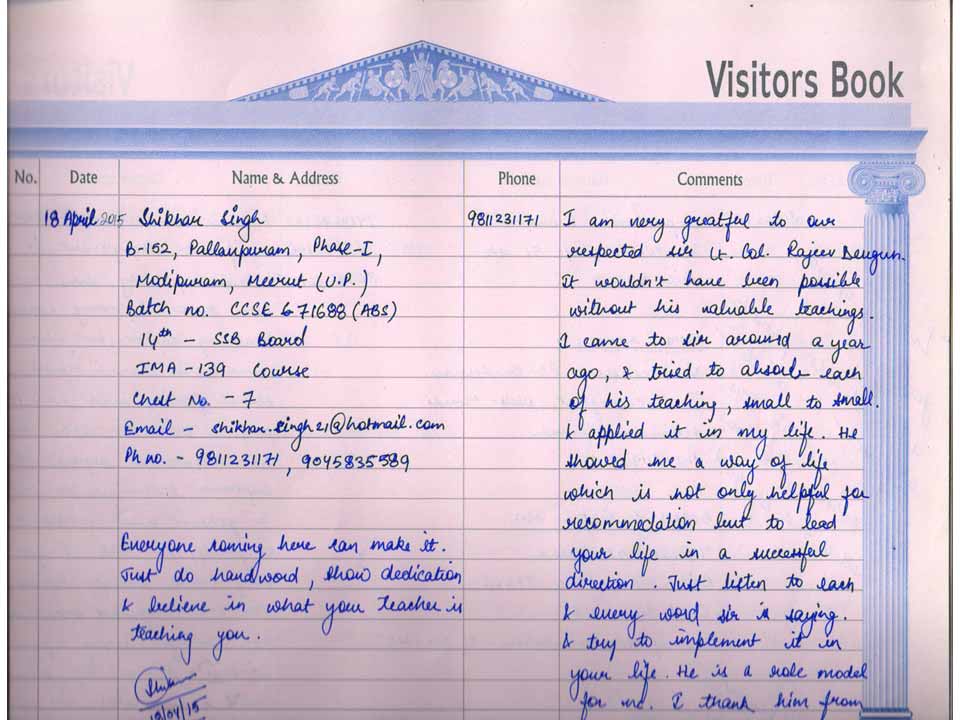 Visitors Book
No. Date Name & Address Phone Comments
18 April 2015 Shikhar Singh 9811231171
B-152, Pallavpuram, Phase-I,
Modipuram, Meerut (U.P.)
Batch no. CCSE 671688 (ABS)
14th - SSB Board
IMA - 139 Course
Chest No. - 7
Email - shikhar.singh21@hotmail.com
Ph no. - 9811231171, 9045835589
Everyone coming here can make it.
Just do handword, show dedication
& believe in what your teacher is
teaching you.
18/04/15
I am very greatful to our
respected sir Lt. Col. Rajeev
It wouldn't have been possible
without his valuable teachings.
I came to sir around a year
ago, & tried to absorb each
of his teaching, small to small.
& applied it in my life. He
showed me a way of life
which is not only helpful for
recommodation but to lead
your life in a successful
direction. Just listen to each
& every word sir is saying.
& try to implement it in
your life. He is a role model
for me. I thank him from